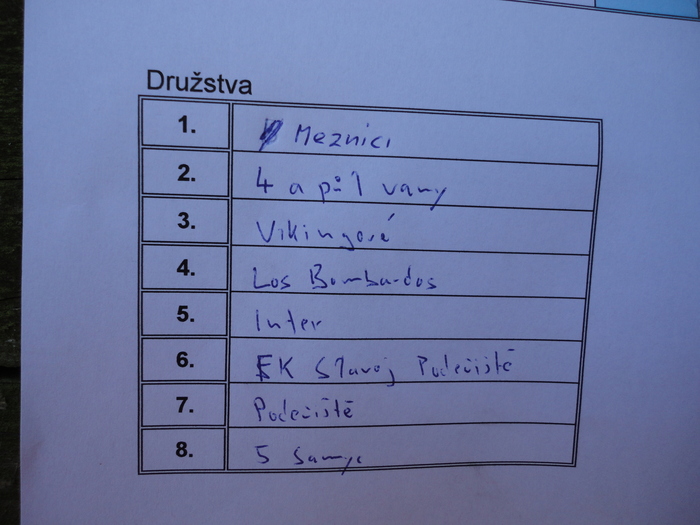 Družstva
1. Meznici
2. 4 a půl vany
3. Vikingové
4. Los Bombardos
5. Inter
6. FK Slavoj Podečiště
7. Podečiště
8. 5